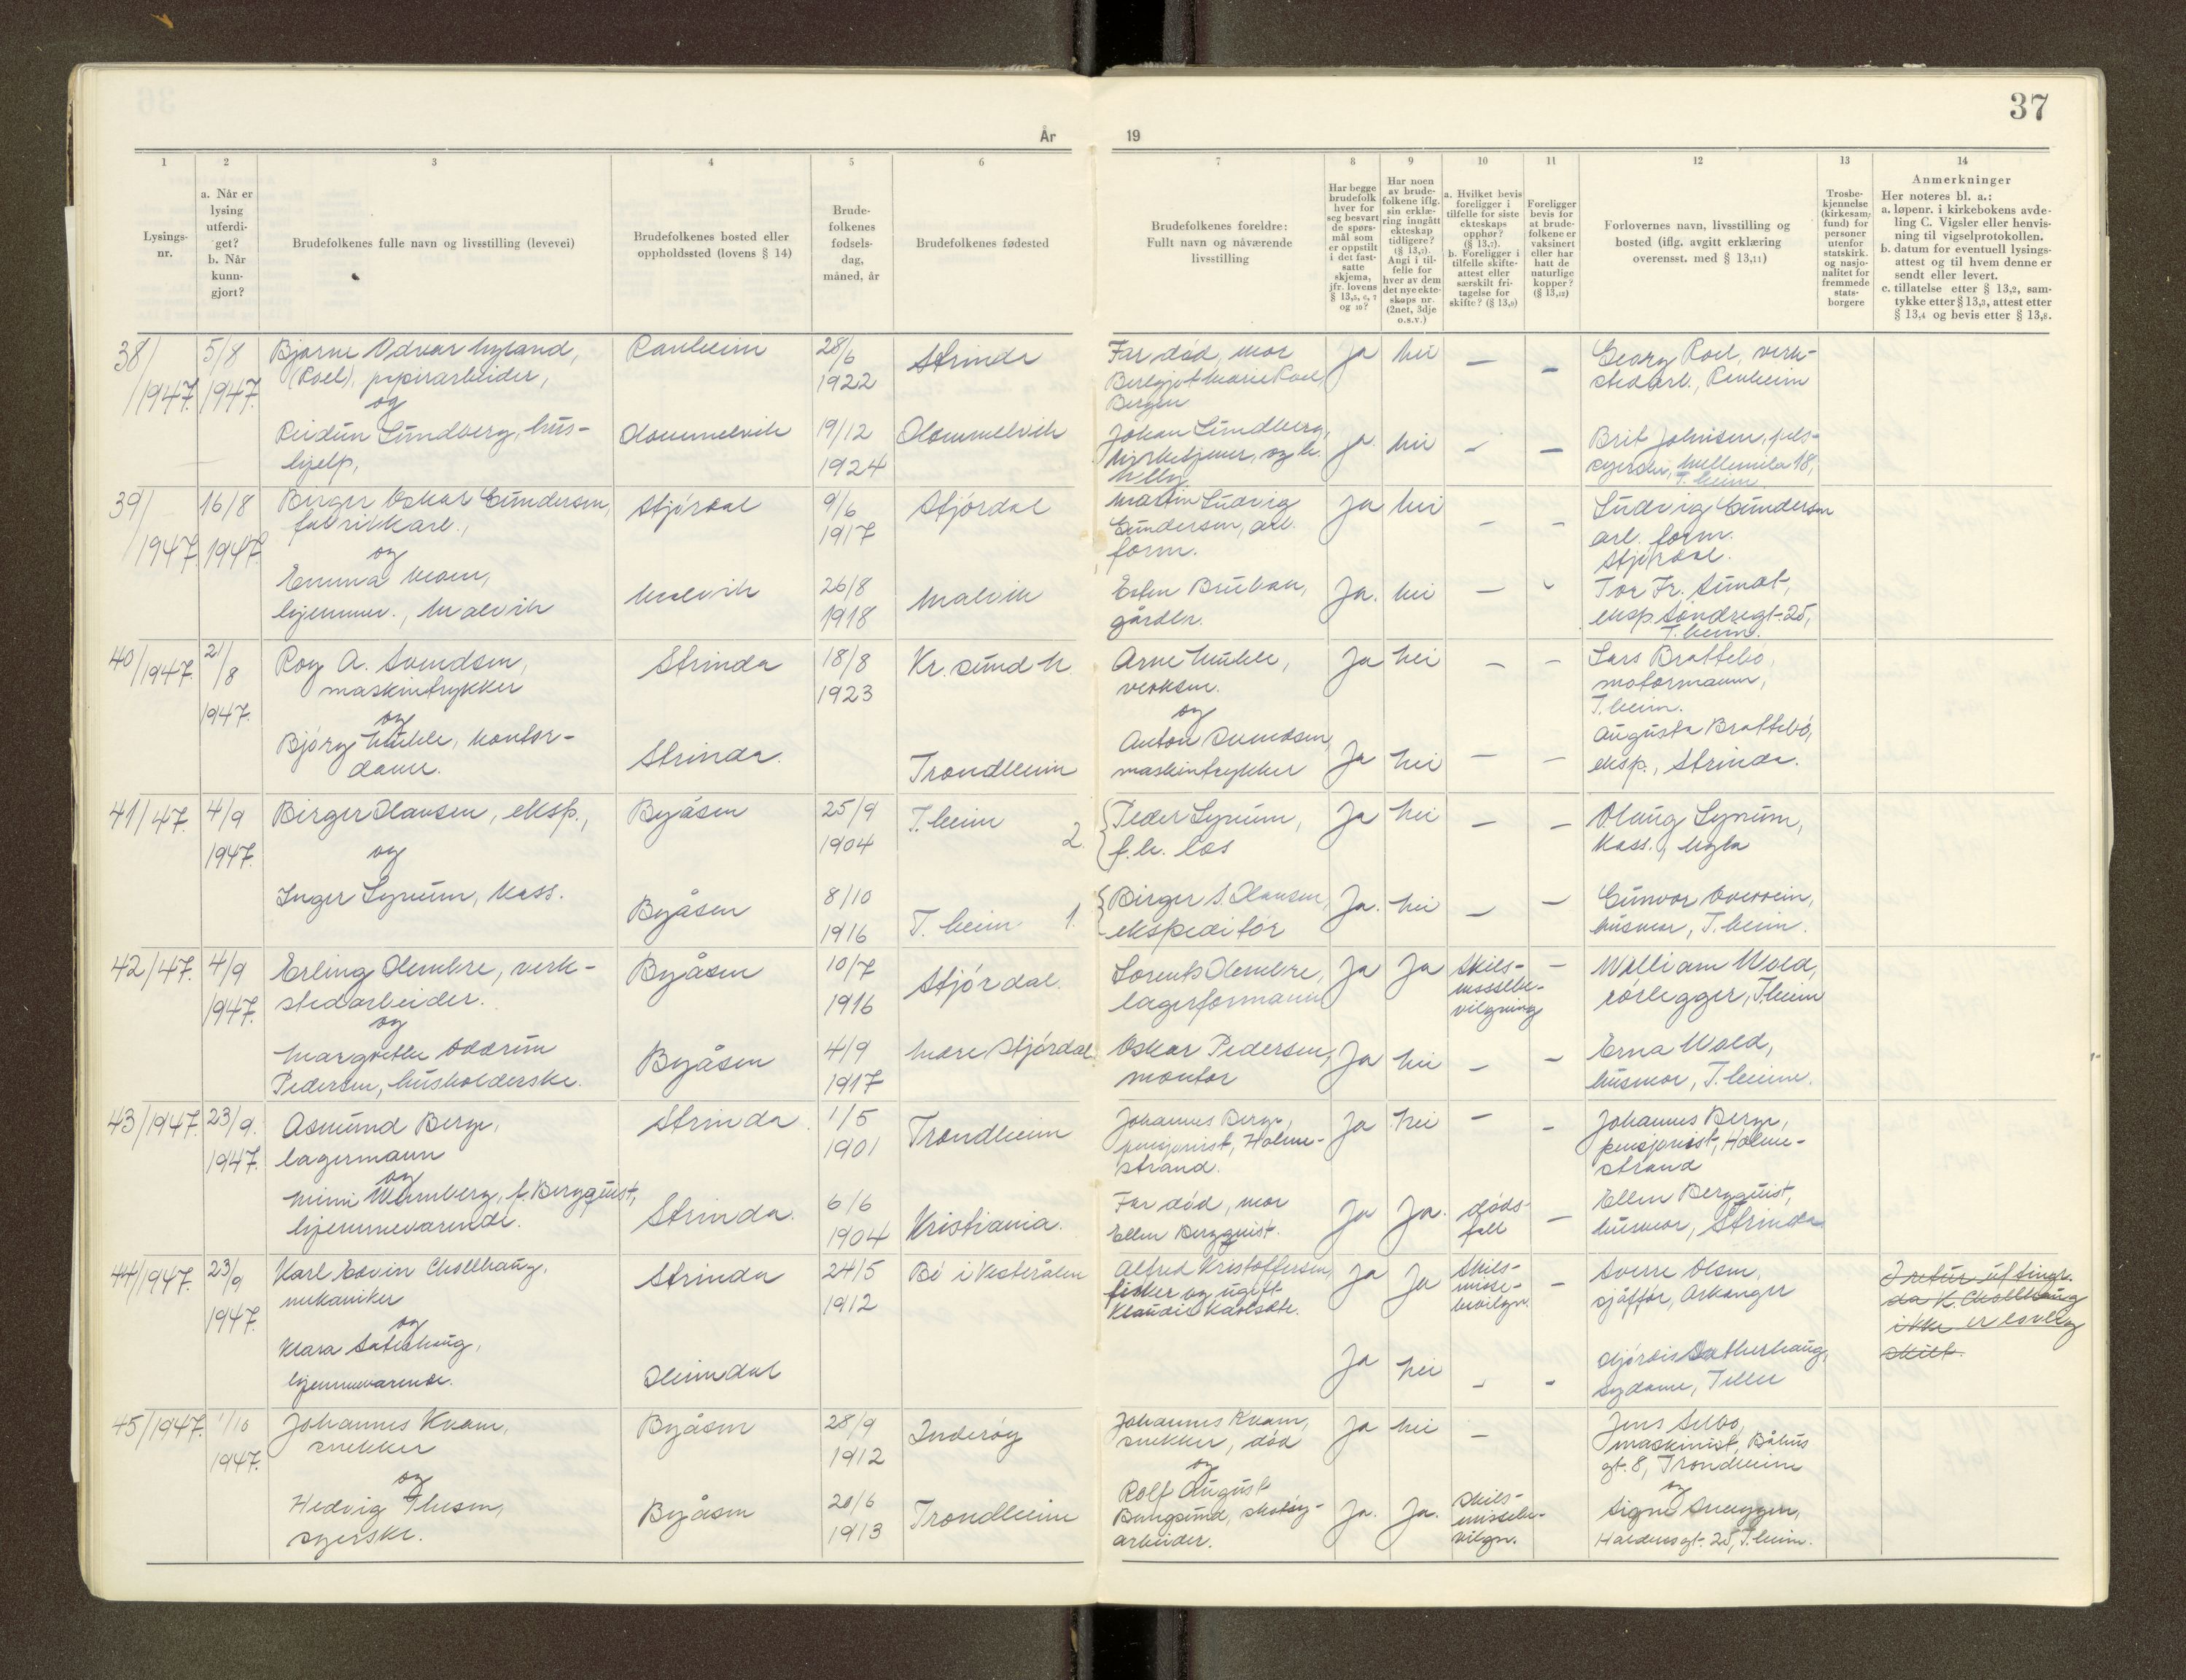 37
År 19
1 2 3 4 5 6 7 8 9 10 11 12 13 14
Lysings-
nr.
a. Når er
lysing
utferdi-
get?
b. Når
kunn-
gjort?
Brudefolkenes fulle navn og livsstilling (levevei)
Brudefolkenes bosted eller
oppholdssted (lovens § 14)
Brude-
folkenes
fødsels-
dag,
måned, år
Brudefolkenes fødested
Brudefolkenes foreldre:
Fullt navn og nåværende
livsstilling
Har begge
brudefolk
hver for
seg besvart
de spørs-
mål som
er oppstilt
i det fast-
satte
skjema,
jfr. lovens
§ 13,5, 6, 7
og 10?
Har noen
av brude-
folkene iflg.
sin erklæ-
ring inngått
ekteskap
tidligere?
(§ 13,7).
Angi i til-
felle for
hver av dem
det nye ekte-
skaps nr.
(2net, 3dje
o.s.v.)
a. Hvilket bevis
foreligger i
tilfelle for siste
ekteskaps
opphør?
(§ 13,7).
b. Foreligger i
tilfelle skifte-
attest eller
særskilt fri-
tagelse for
skifte? (§ 13,9)
Foreligger
bevis for
at brude-
folkene er
vaksinert
eller har
hatt de
naturlige
kopper?
(§ 13,12)
Forlovernes navn, livsstilling og
bosted (iflg. avgitt erklæring
overensst. med § 13,11)
Trosbe-
kjennelse
(kirkesam-
fund) for
personer
utenfor
statskirk.
og nasjo-
nalitet for
fremmede
stats-
borgere
Anmerkninger
Her noteres bl. a.:
a. løpenr. i kirkebokens avde-
ling C. Vigsler eller henvis-
ning til vigselprotokollen.
b. datum for eventuell lysings-
attest og til hvem denne er
sendt eller levert.
c. tillatelse etter § 13,2, sam-
tykke etter § 13,3, attest etter
§ 13,4 og bevis etter § 13,8.
38/
/1947.
5/8
1947.
Bjarne Odvar Myland,
(Roel), papirarbeider,
og
Reidun Sundberg, hus-
hjelp,
Ranheim
Hommelvik
28/6
1922
19/12
1924
Strinda
Hommelvik
Far død, mor
Bergljot Marie Roel,
Bergen
Johan Sundberg,
kirketjener, og h.
Nelly
Ja nei – –
Ja. nei – –
Georg Roel, verk-
stedarb., Ranheim
Brit Johnsen, pels-
syerske, Mellemila 18,
T.heim.
39/
/1947.
16/8
1947.
Birger Oskar Gundersen,
fabrikkarb.,
og
Emma Moen,
hjemmev., Malvik
Stjørdal
Malvik
9/6
1917
26/8
1918
Stjørdal
Malvik
Martin Ludvig
Gundersen, arb.
form.
Esten Brubak,
gårdbr.
Ja nei – –
Ja. nei –
Ludvig Gundersen
arb. form.
Stjørdal.
Tor Fr. Sundt,
eksp. Søndregt. 25,
T.heim.
40/1947.
21/8
1947.
Roy A. Svendsen,
maskintrykker
og
Bjørg Muhle, kontor-
dame.
Strinda
Strinda.
18/8
1923
Kr.sund N.
Trondheim
Arne Muhle,
verksm.
og
Anton Svendsen,
maskintrykker
Ja nei – –
Ja nei – –
Lars Brattebø,
motormann,
T.heim.
Augusta Brattebø,
eksp., Strinda.
41/47.
4/9
1947.
Birger Hansen, eksp.,
og
Inger Lynum, kass.
Byåsen
Byåsen
25/9
1904
8/10
1916
T.heim
T.heim
2. Peder Lynum,
f.h. los
1. Birger S. Hansen,
ekspeditør
Ja nei – –
Ja. nei – –
Olaug Lynum,
kass., Ugla
Gunvor Overrein,
husmor, T.heim.
42/47.
4/9
1947.
Erling Hembre, verk-
stedarbeider.
og
Margrethe Oddrun
Pedersen, husholderske.
Byåsen
Byåsen
10/7
1916
4/9
1917
Stjørdal.
Nedre Stjørdal
Lorents Hembre,
lagerformann
Oskar Pedersen,
montør
Ja Ja Skils-
missebe-
vilgning –
Ja nei – –
William Wold,
rørlegger, T.heim
Erna Wold,
husmor, T.heim.
43/1947.
23/9.
1947.
Asmund Berge,
lagermann
og
Mimi Warnberg, f. Bergquist,
hjemmeværende.
Strinda.
Strinda.
1/5
1901
6/6
1904
Trondheim
Kristiania.
Johannes Berge,
pensjonist, Holme-
strand.
Far død, mor
Ellen Bergquist.
Ja nei – –
Ja Ja. døds-
fall –
Johannes Berge,
pensjonist, Holme-
strand
Ellen Bergquist,
husmor, Strinda
44/1947.
23/9
1947.
Karl Edvin Skollhaug,
mekaniker
og
Klara Sæterhaug,
hjemmeværende.
Strinda
Heimdal
24/5
1912
Bø i Vesterålen
Alfred Kristoffersen,
fisker og ugift
Klaudie Karlsdtr.
Ja Ja Skils-
misse-
bevilgn. –
Ja nei – –
Sverre Olsen,
sjåfør, Orkanger
Hjørdis Sætherhaug,
sydame, Tiller
I retur
da K. Skollhaug
ikke er lovlig
skilt.
45/1947.
1/10
1947.
Johannes Kvam,
snekker
og
Hedvig Thesen,
syerske.
Byåsen
Byåsen
28/9
1912
20/6
1913
Inderøy
Trondheim
Johannes Kvam,
snekker, død
og
Rolf August
Bungsund, skotøy-
arbeider.
Ja nei –
Ja. Ja. Skils-
missebe-
vilgn.
Jens Selbo,
maskinist, Båhus
gt. 8, Trondheim
og
Signe Snuggen,
Haldensgt. 25, T.heim.